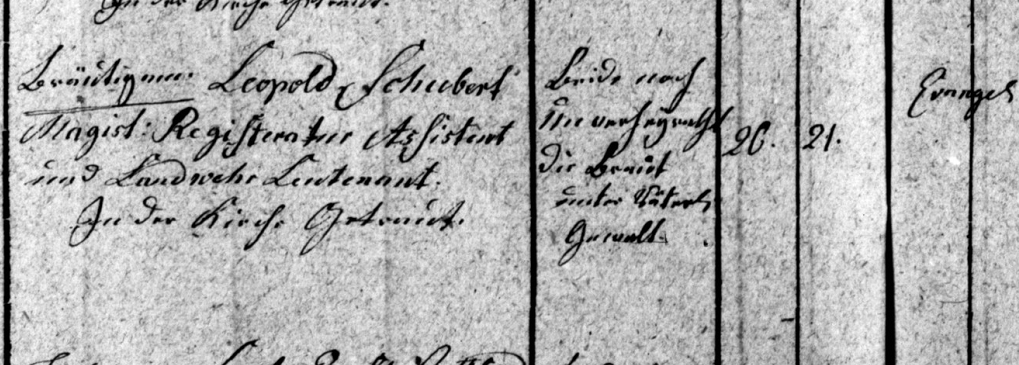 In der Kirche Getraut.
Bräutigam. Leopold Schubert
Magist: Registeratur Assistent
und Landwehr Leutenant.
In der Kirche Getraut.
Beide noch
Unverheyrathet
die Braut
unter Väterl
Gewalt.
26.
21.
Evangel